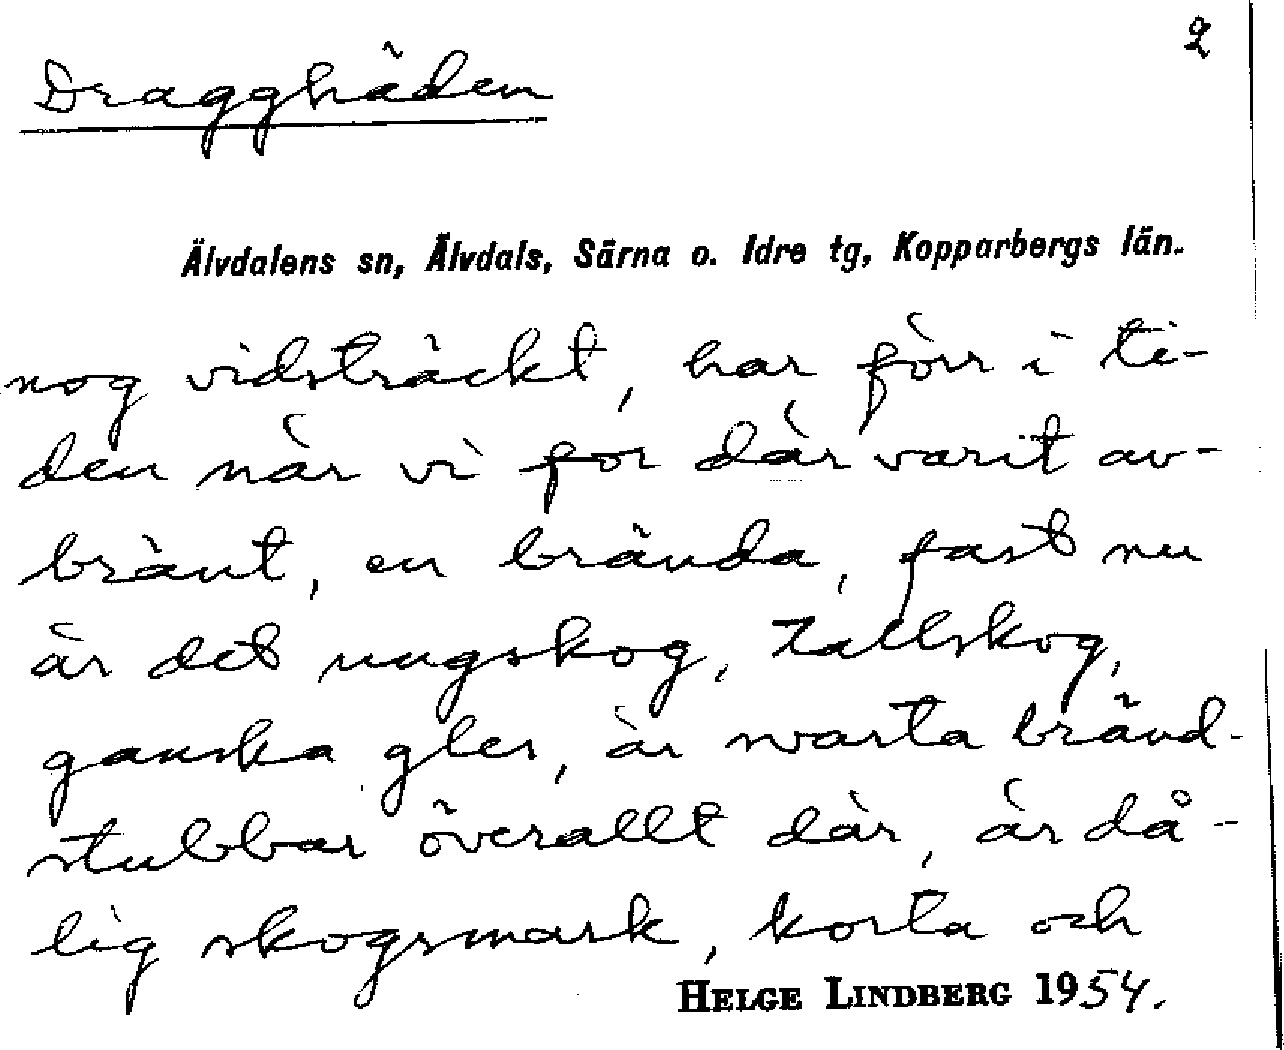 2
Dragghäden
Älvdalens sn, Älvdals, Särna o. Idre tg, Kopparbergs län.
nog vidsträckt, har förr i ti-
den när vi for där varit av-
bränt, en brända, fast nu
är det ungskog, tallskog,
ganska gles, är svarta bränd-
stubbar överallt där, är då-
lig skogsmark, korta och
HELGE LINDBERG 1954.